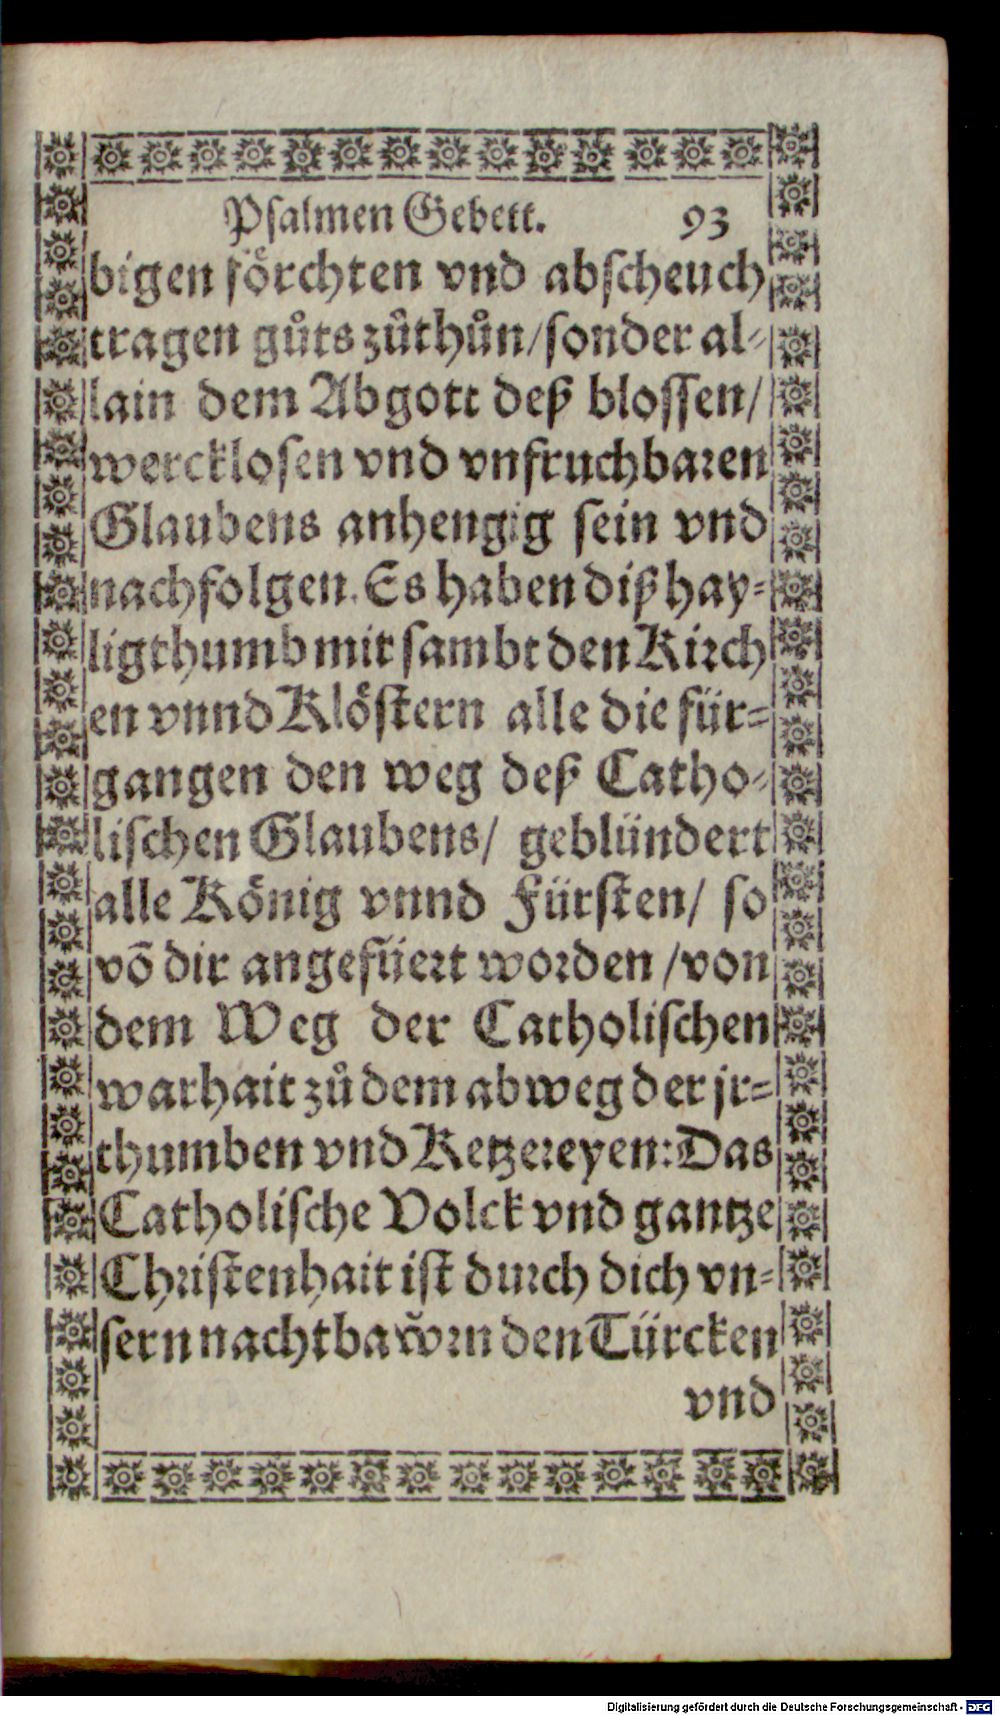 Psalmen Gebett. 93
bigen förchten vnd abscheuch
tragen gůts zůthůn/sonder al-
lain dem Abgott deß blossen/
wercklosen vnd vnfruchbaren
Glaubens anhengig sein vnd
nachfolgen. Es haben diß hay-
ligthumb mit sambt den Kirch
en vnnd Klöstern alle die für-
gangen den weg deß Catho-
lischen Glaubens/ geblündert
alle König vnnd Fürsten/ so
võ dir angefüert worden /von
dem Weg der Catholischen
warhait zů dem abweg der jr-
thumben vnd Ketzereyen: Das
Catholische Volck vnd gantze
Christenhait ist durch dich vn-
sern nachtbaw̌rn den Türcken
vnd
Digitalisierung gefördert durch die Deutsche Forschungsgemeinschaft - DFG